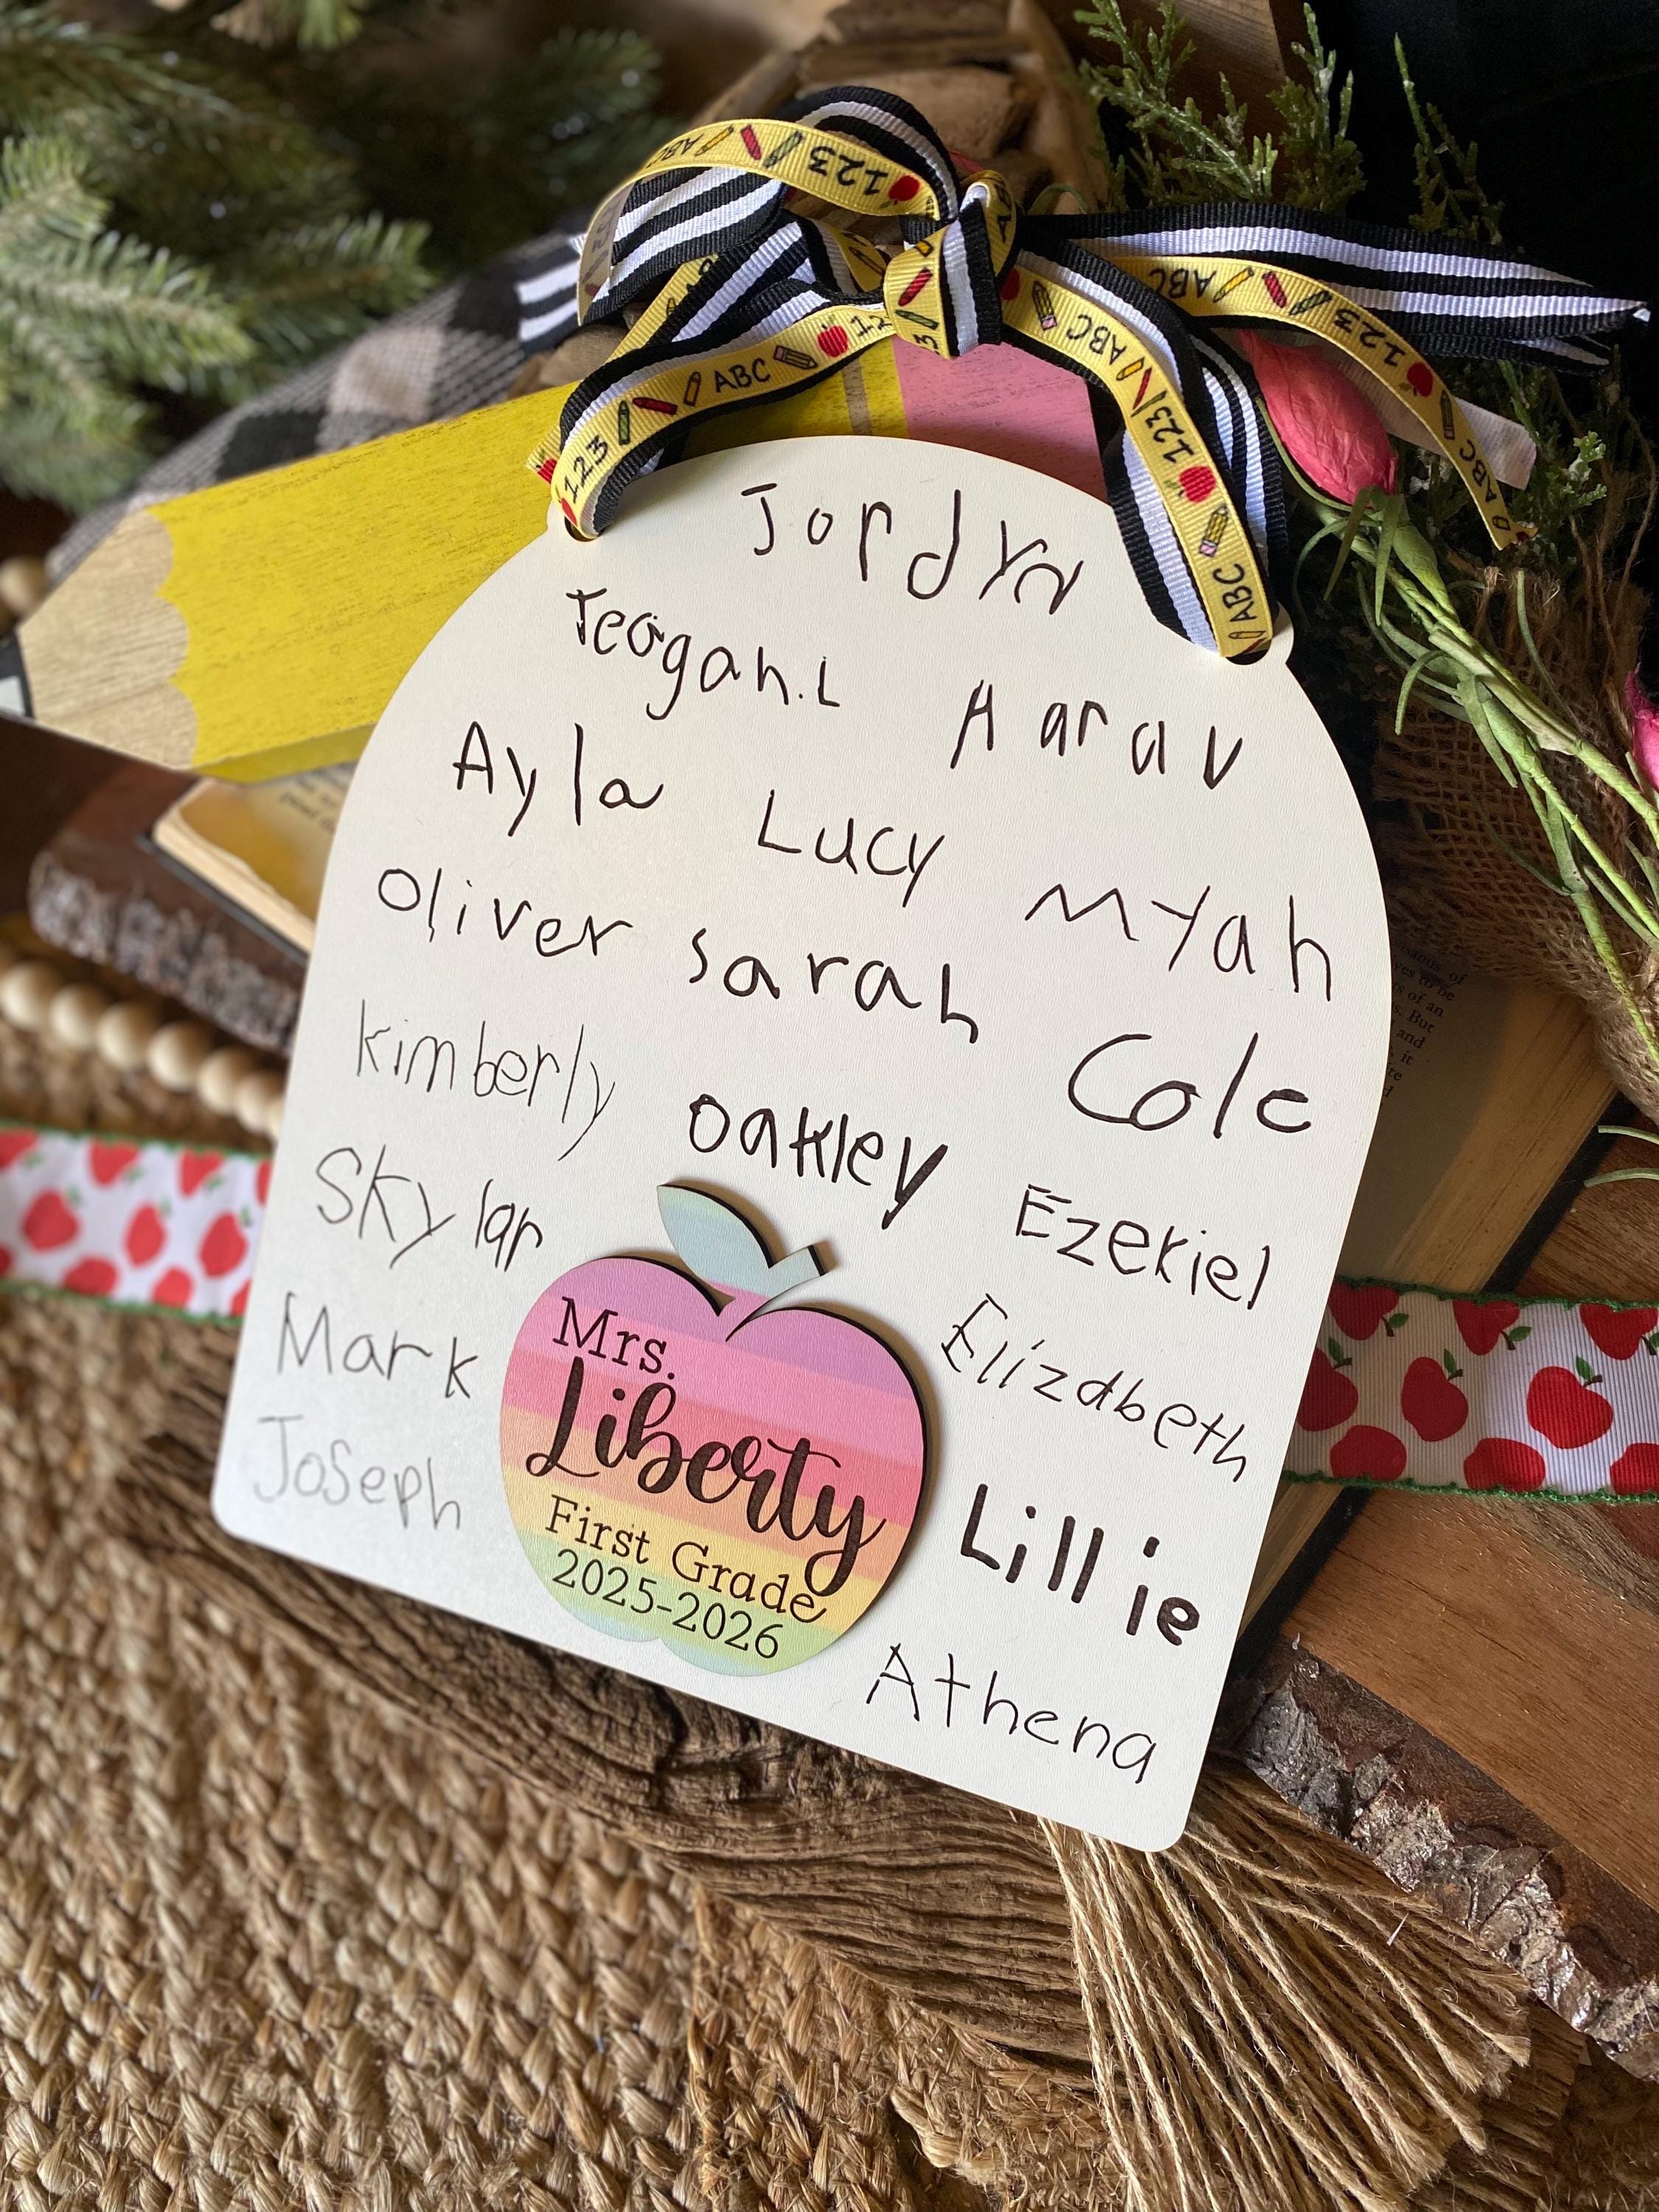 Jordyn
Teagan.L
Aarav
Ayla
Lucy
Myah
Oliver
sarah
Cole
kimberly
Oakley
Ezekiel
Skylar
Elizabeth
Mark
Joseph
Lillie
Athena
Mrs.
Liberty
First Grade
2025-2026
123 ABC 123
ABC 123
ABC 123 ABC
ABC 123 ABC